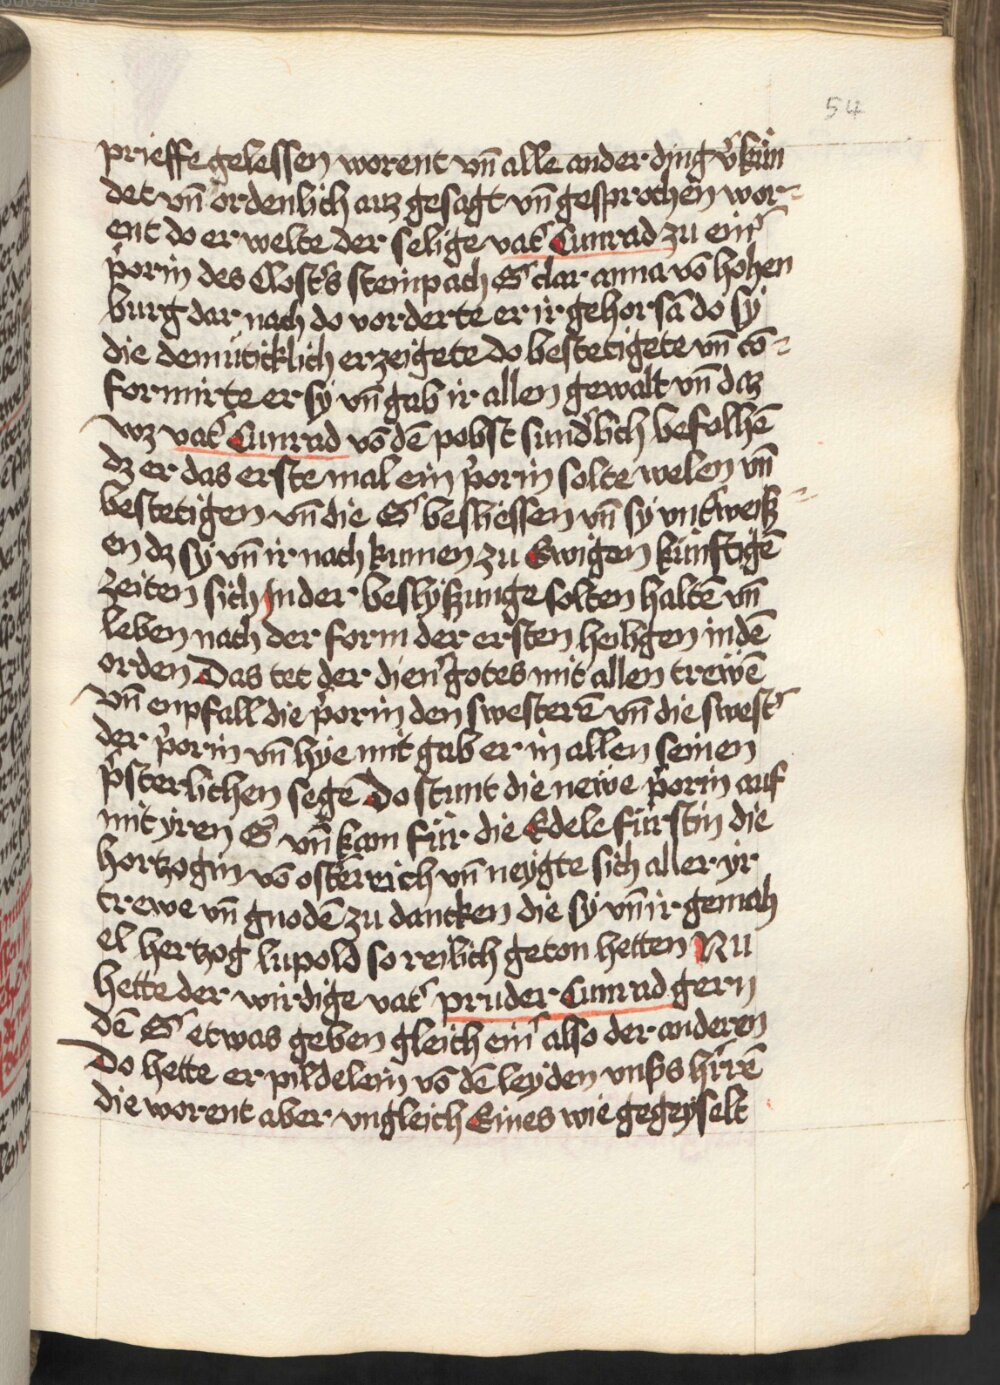 54
prieffe gelessen worent vn̄ alle ander ding v̓kün
det vn̄ ordenlich auz gesagt vn̄ gesprochen wor-
ent do er welte der selige vat̓ Cunrad zu ein̓
p̓orin des Clost̓s steinpach S̓ clar anna vō hohen
burg dar nach do vorderte er ir gehorsā do sy
die demüticklich erzeigete do bestetigete vn̄ cō-
formirte er sy vn̄ gab ir allen gewalt vn̄ daz
wz vat̓ Cunrad vō dē pobst sund̓lich befolhē
dz er das erste mal ein p̓orin solte welen vn̄
bestetigen vn̄ die S̓ besliessen vn̄ sy vnd̓weiß-
en dz sy vn̄ ir nach kumen zu Ewigen künftigē
zeiten sich in der beslyßunge solten haltē vn̄
leben nach der form der ersten heiligen in dē
orden Das tet der dien̓ gotes mit allen trewē
vn̄ enpfall die p̓orin den swesterē vn̄ die swest̓
der p̓orin vn̄ hye mit gab er in allen seinen
p̓sterlichen segē Do stunt die newe p̓orin auf
mit yren S̓ vn̄ kam für die Edele fürstin die
hertzogin vō ost̓reich vn̄ neygte sich aller yr
trewe vn̄ gnodē zu dancken die sy vn̄ ir gemah
el hertzog lupold so reilich geton hetten Nu
hette der wirdige vat̓ pruder Cunrad gern
dē S̓ etwas geben gleich ein̓ also der anderen
Do hette er pildelein vō dē leyden vnß̓s h̓rē
die worent aber vngleich Eines wie gegeyselt